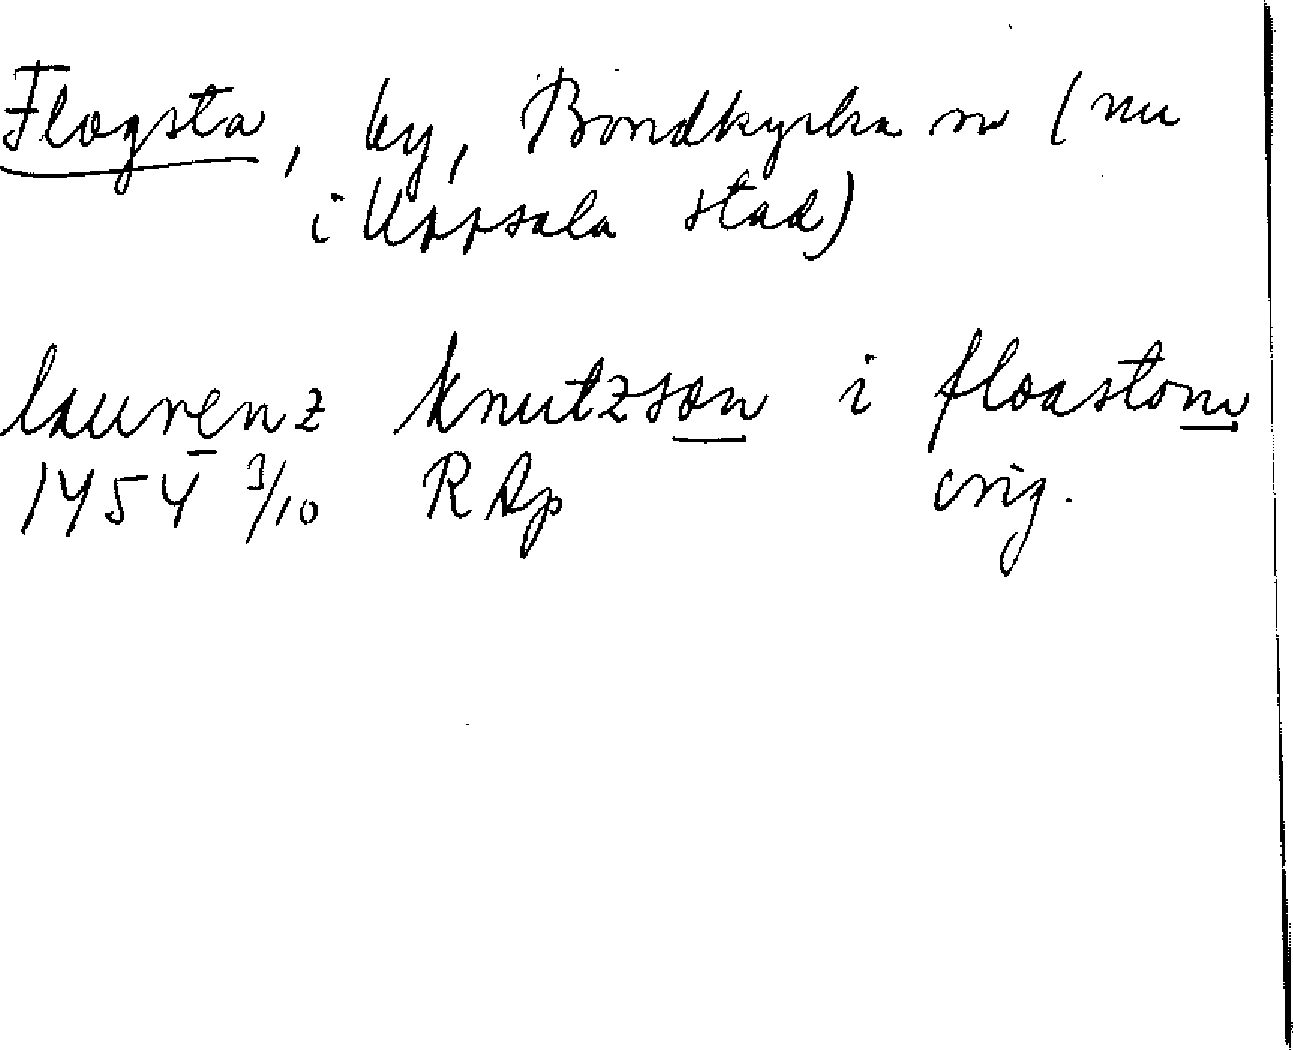 Flogsta, by, Bondkyrko sn (nu
i Uppsala stad)
laurenz knutzson i floastom
1454 3/10 RAp orig.